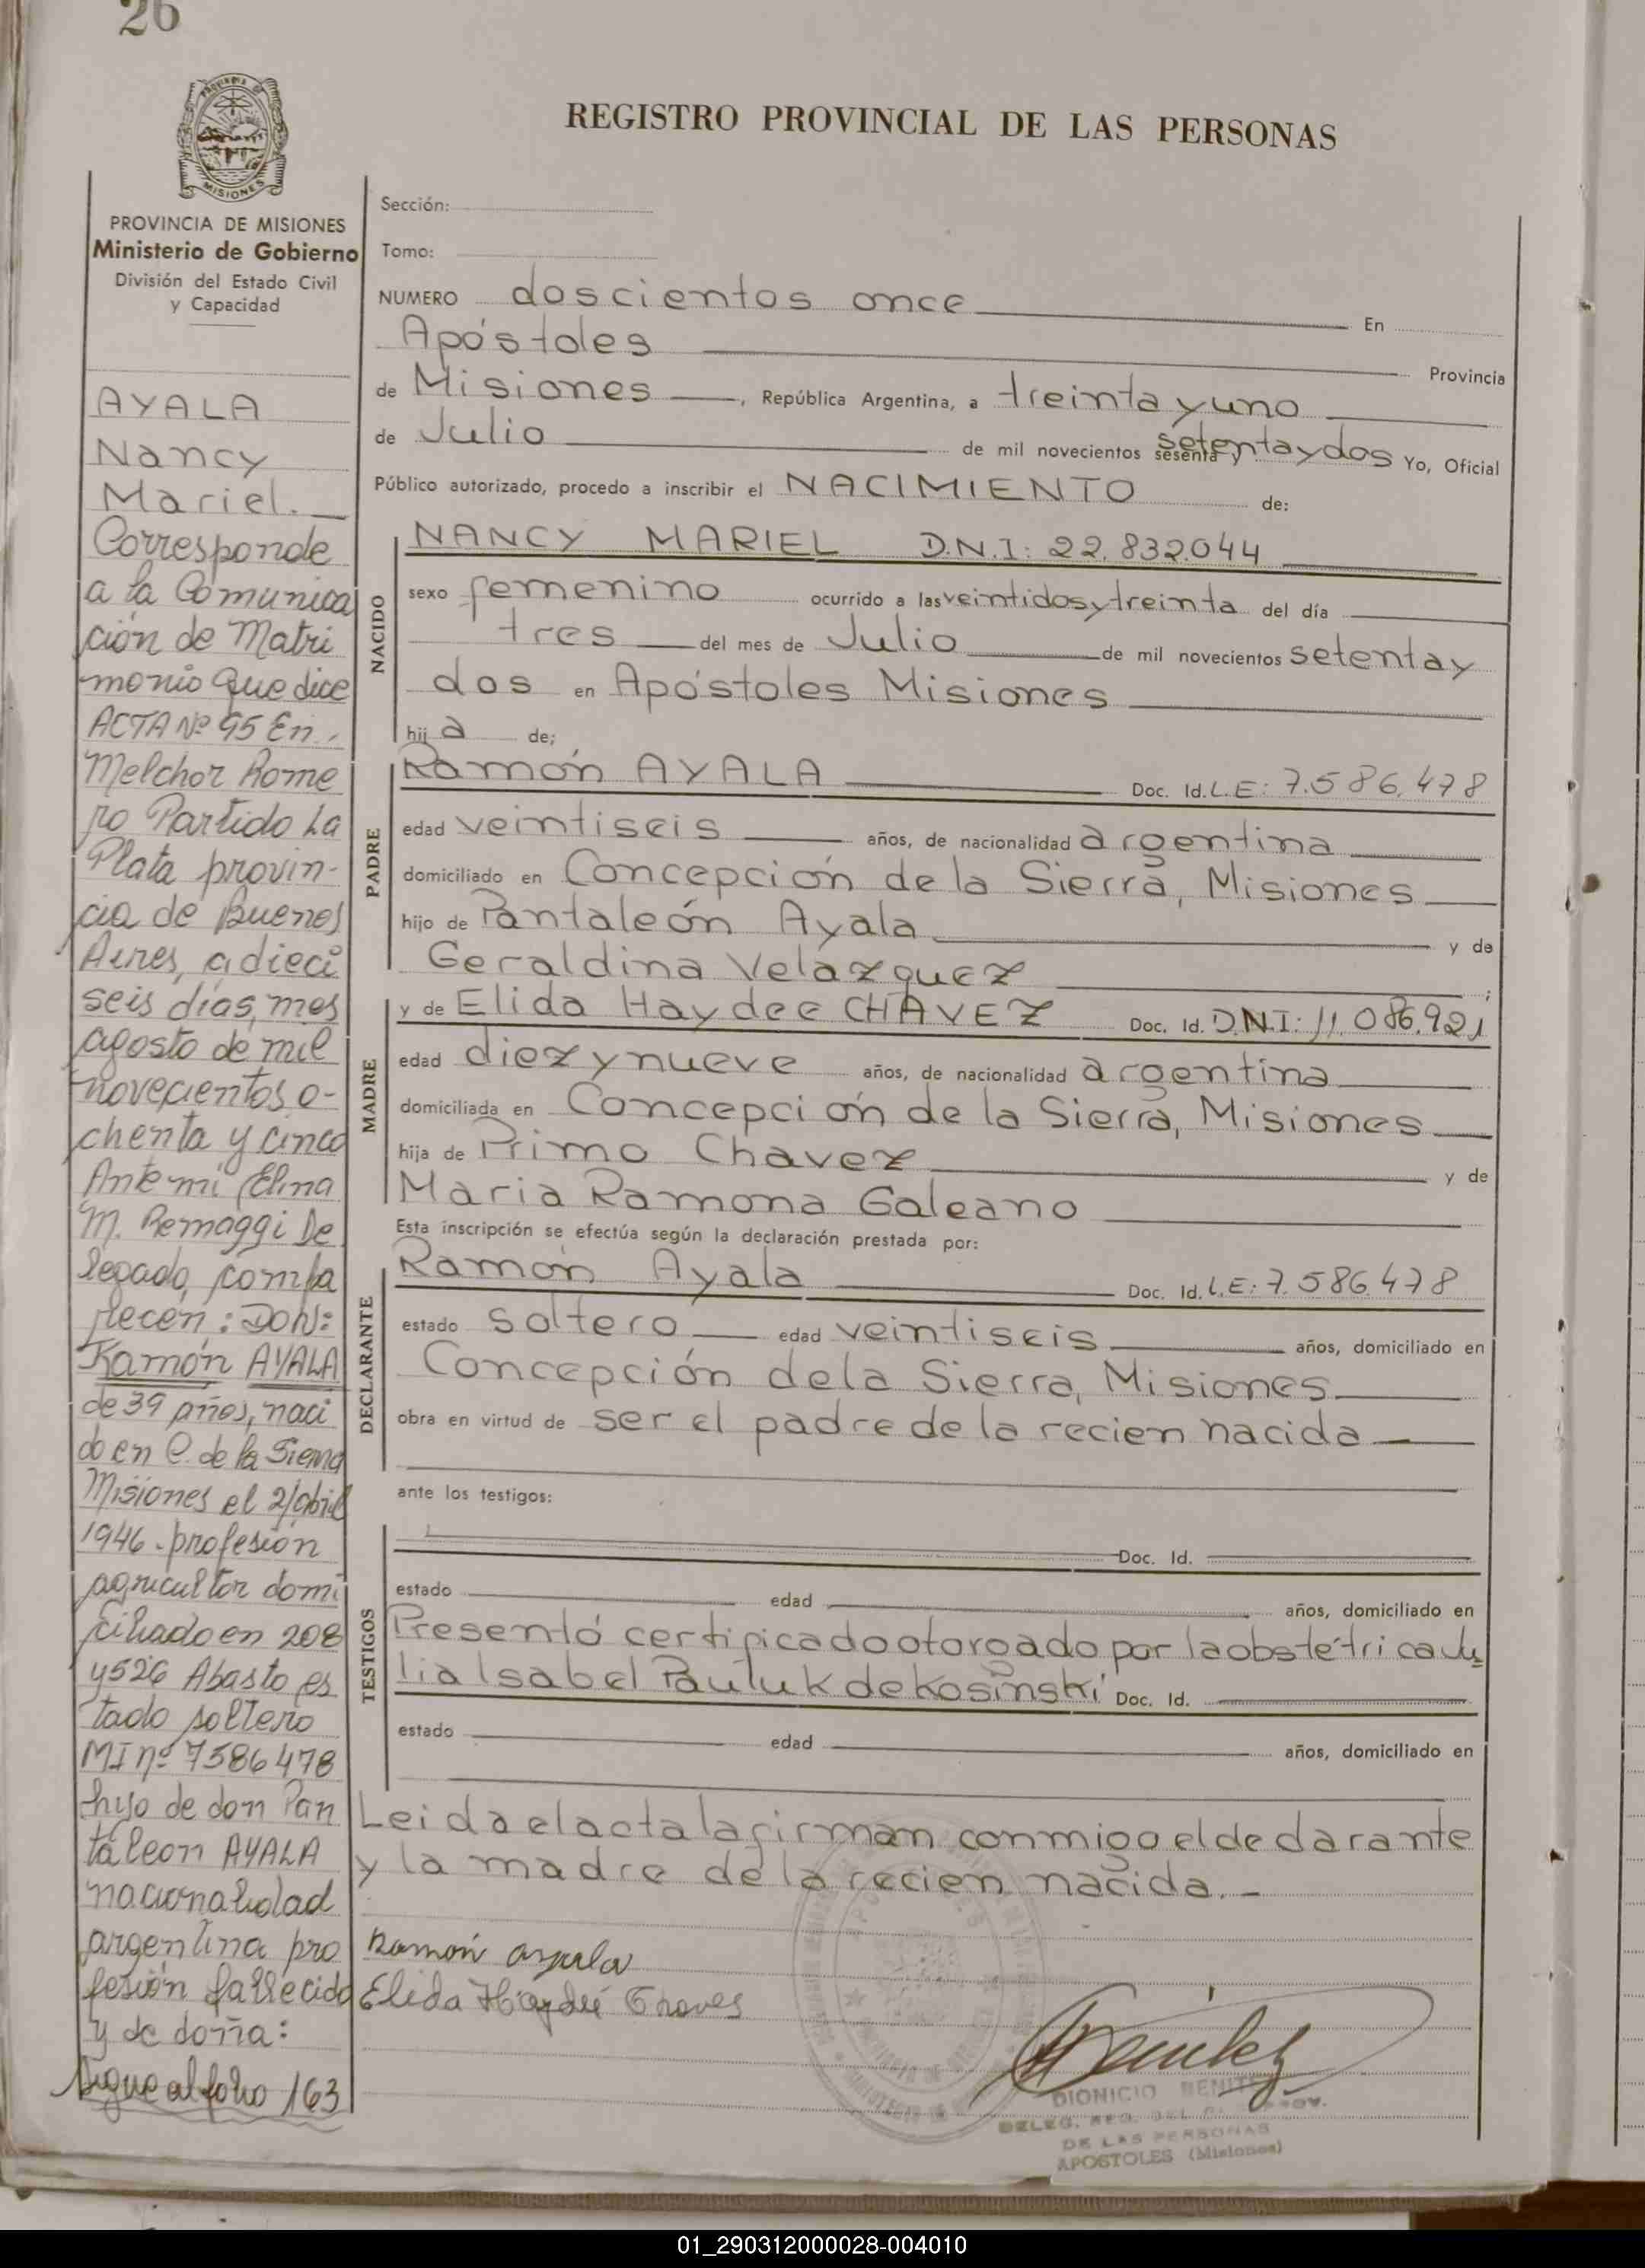 26
REGISTRO PROVINCIAL DE LAS PERSONAS
MISIONES
PROVINCIA DE MISIONES
Ministerio de Gobierno
División del Estado Civil
y Capacidad
AYALA
Nancy
Mariel.
Corresponde
a la Comunica
ción de Matri
monio que dice
ACTA Nº 95 En
Melchor Rome
ro Partido La
Plata provin-
cia de Buenos
Aires, a dieci
seis días, mes
agosto de mil
novecientos o-
chenta y cinco
Ante mi Elina
M. Remaggi De
legado, compa
recen: DON:
Ramón AYALA
de 39 años, naci
do en C. de la Sierra
Misiones el 2/abril
1946. profesión
agricultor domi
ciliado en 208
y 526 Abasto es
tado soltero
MI nº 7586478
hijo de don Pan
taleon AYALA
nacionalidad
argentina pro
fesión fallecido
y de doña:
Sigue al folio 163
Sección:
Tomo:
NUMERO doscientos once En
Apóstoles Provincia
de Misiones , República Argentina, a treinta y uno
de Julio de mil novecientos sesenta y setenta y dos Yo, Oficial
Público autorizado, procedo a inscribir el NACIMIENTO de:
NACIDO
NANCY MARIEL D.N.I: 22.832.044
sexo femenino ocurrido a las veintidos y treinta del día
tres del mes de Julio de mil novecientos setenta y
dos en Apóstoles Misiones
hij a de;
PADRE
Ramón AYALA Doc. Id. L.E: 7.586.478
edad veintiseis años, de nacionalidad argentina
domiciliado en Concepción de la Sierra, Misiones
hijo de Pantaleón Ayala y de
Geraldina Velazquez ;
MADRE
y de Elida Haydee CHAVEZ Doc. Id. D.N.I: 11.086.921
edad diez y nueve años, de nacionalidad argentina
domiciliada en Concepción de la Sierra, Misiones
hija de Primo Chavez y de
Maria Ramona Galeano
Esta inscripción se efectúa según la declaración prestada por:
DECLARANTE
Ramón Ayala Doc. Id. L.E: 7.586.478
estado soltero edad veintiseis años, domiciliado en
Concepción de la Sierra, Misiones
obra en virtud de ser el padre de la recien nacida
ante los testigos:
TESTIGOS
Doc. Id.
estado edad años, domiciliado en
Presentó certificado otorgado por la obstétrica Ju
lia Isabel Pauluk de Kosinski Doc. Id.
estado edad años, domiciliado en
Leida el acta la firman conmigo el declarante
y la madre de la recien nacida.-
Ramón Ayala
Elida Haydeé Chaves
DIONICIO BENITEZ
DE LAS PERSONAS
APOSTOLES (Misiones)
01_290312000028-004010